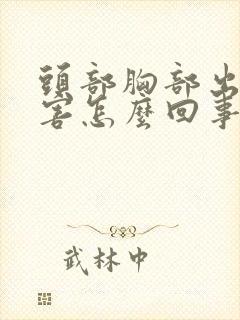 頭部胸部出
害怎麼回事
武林中